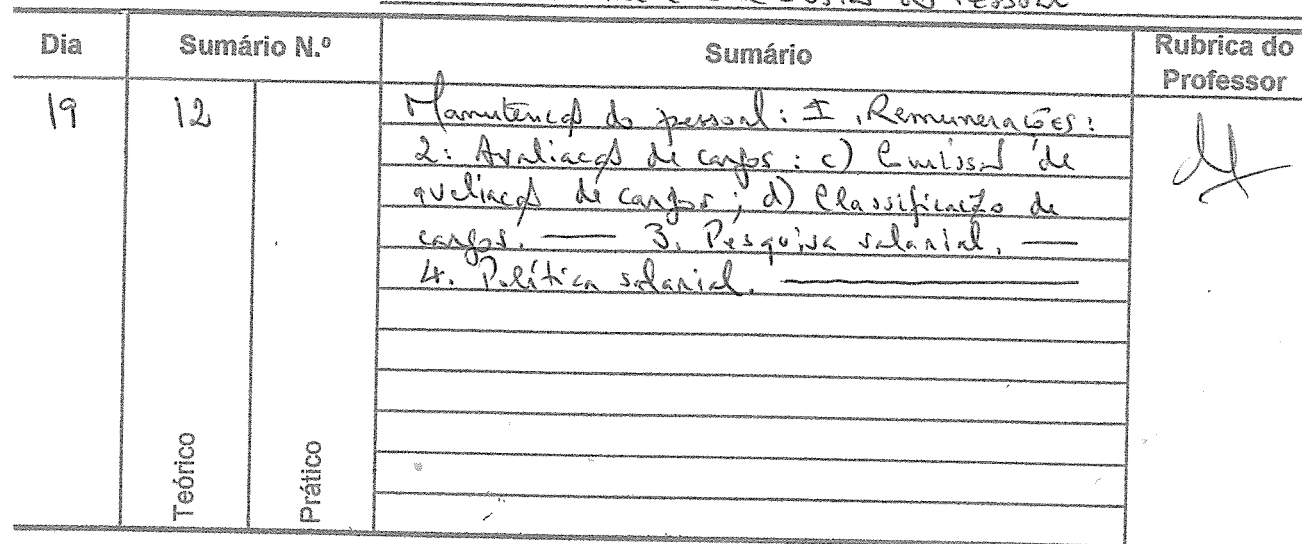 Dia
Sumário N.º
Sumário
Rubrica do
Professor
19
12
Manutenção do pessoal: I. Remunerações:
2: Avaliação de cargos: c) Comissão de
avaliação de cargos; d) Classificação de
cargos. — 3. Pesquisa salarial. —
4. Política salarial. —
Teórico
Prático